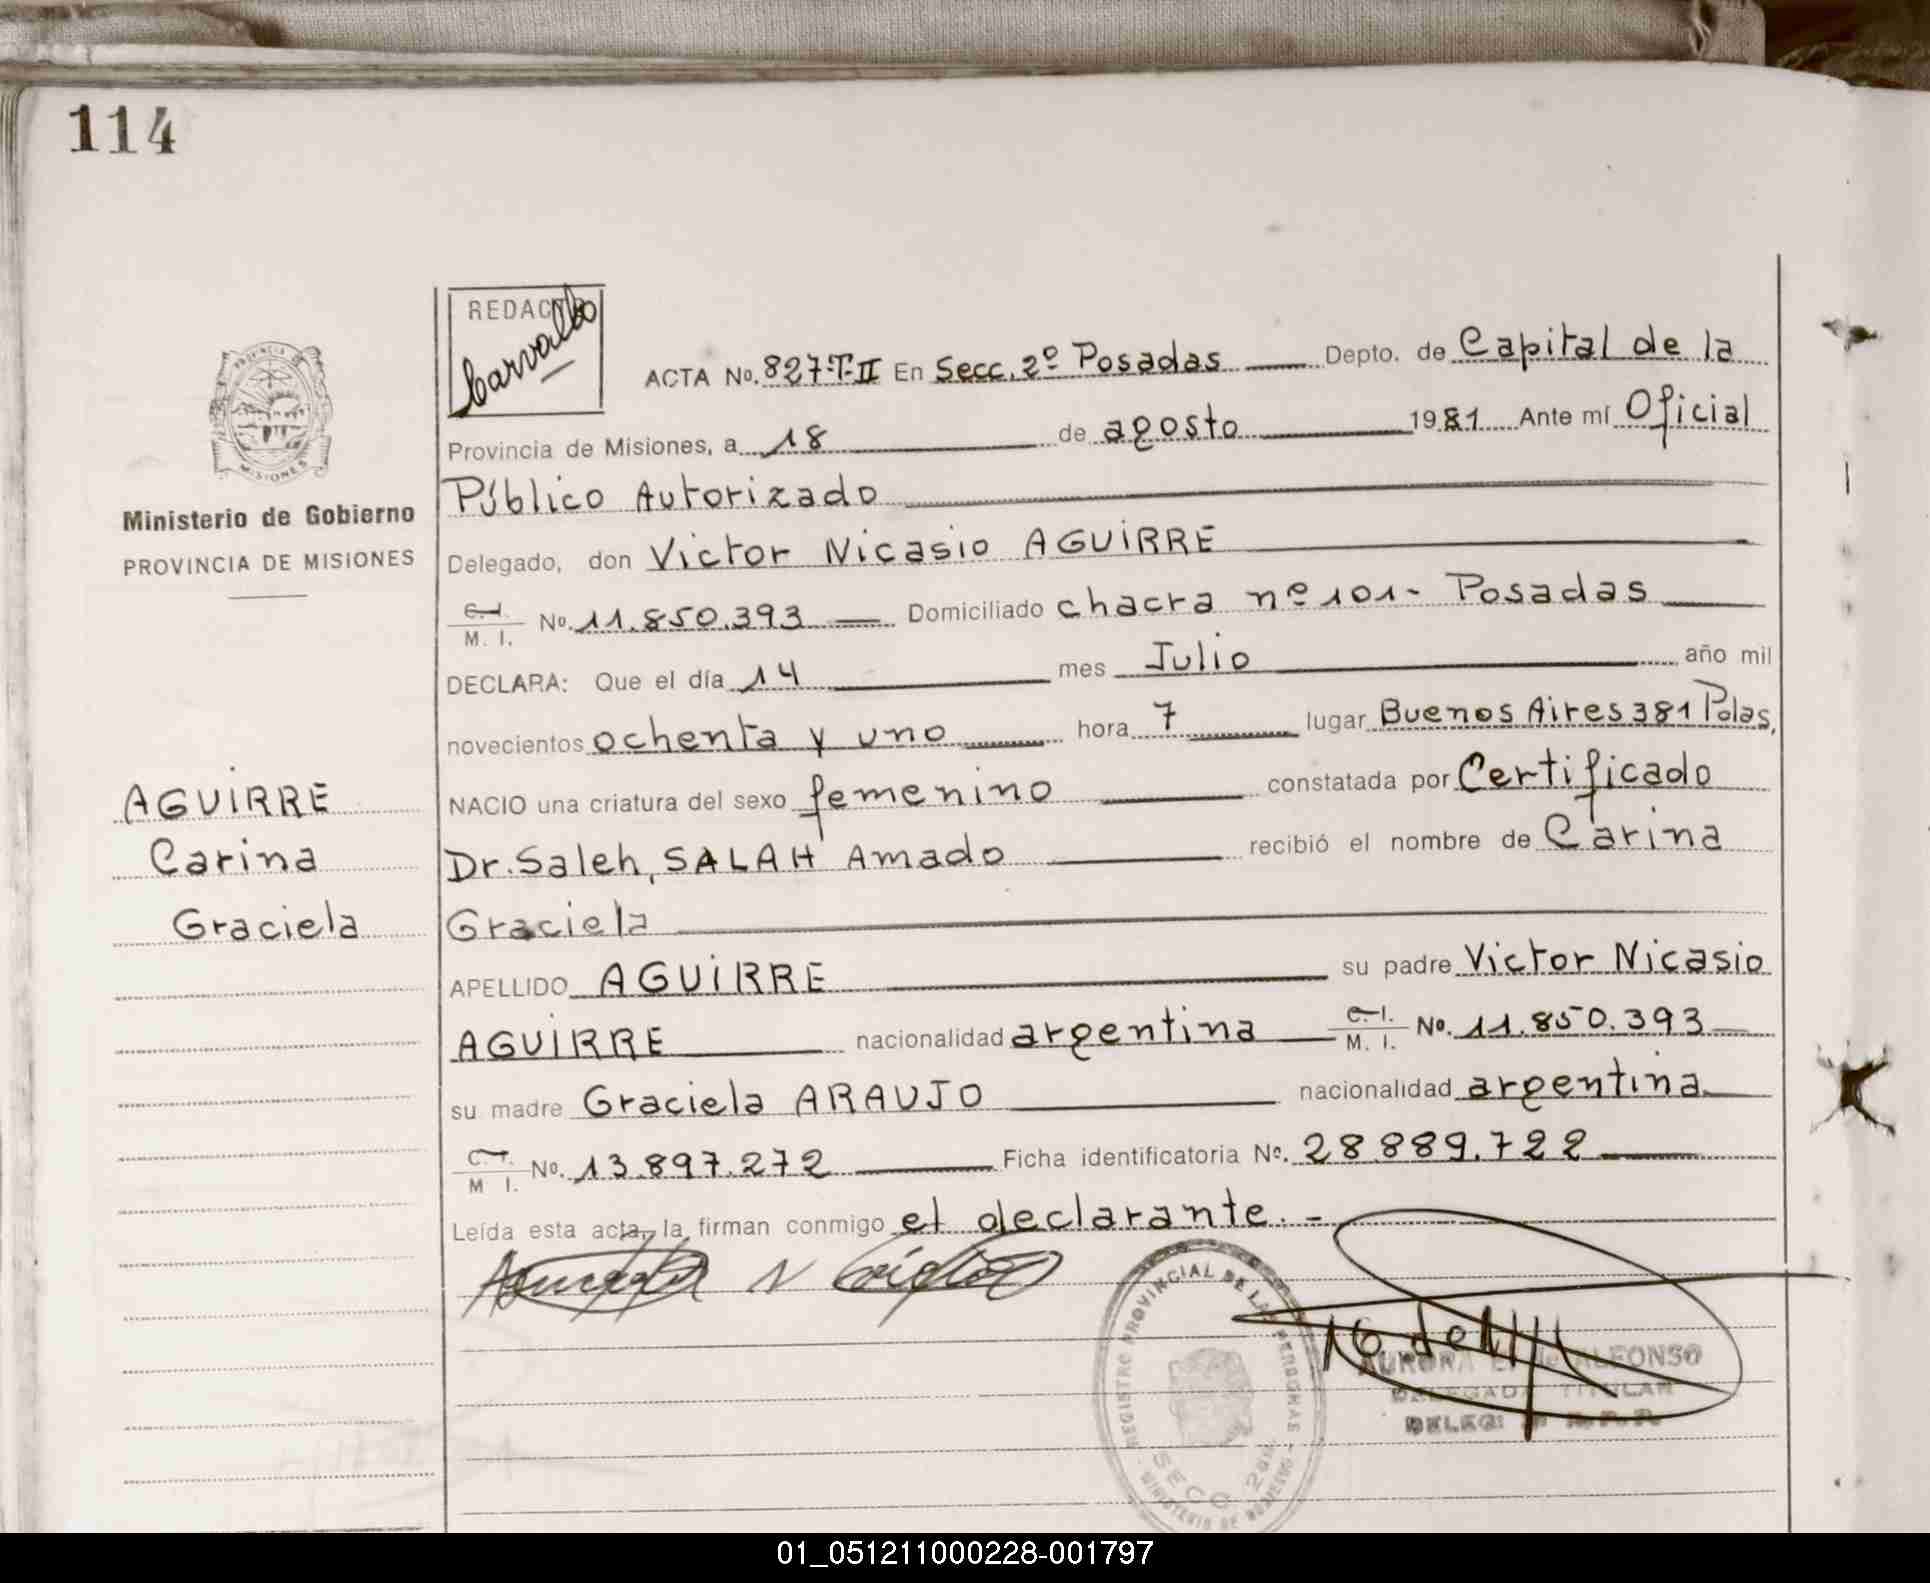 114
REDACTO
Carvalho
ACTA No. 827-T-II En Secc. 2º Posadas Depto. de Capital de la
Provincia de Misiones, a 18 de agosto 1981 Ante mí Oficial
Público Autorizado
Delegado, don Victor Nicasio AGUIRRE
C.I. M. I. No. 11.850.393 Domiciliado chacra nº 101- Posadas
DECLARA: Que el día 14 mes Julio año mil
novecientos ochenta y uno hora 7 lugar Buenos Aires 381 Pdas,
NACIO una criatura del sexo femenino constatada por Certificado
Dr. Saleh, SALAH Amado recibió el nombre de Carina
Graciela
APELLIDO AGUIRRE su padre Victor Nicasio
AGUIRRE nacionalidad argentina C.I. M. I. No. 11.850.393
su madre Graciela ARAUJO nacionalidad argentina
C.I. M I. No. 13.897.272 Ficha identificatoria No. 28.889.722
Leída esta acta, la firman conmigo el declarante. -
PROVINCIA DE
MISIONES
Ministerio de Gobierno
PROVINCIA DE MISIONES
AGUIRRE
Carina
Graciela
REGISTRO PROVINCIAL DE LAS PERSONAS
SECC. 2da.
MINISTERIO DE GOBIERNO
AURORA E. de ALFONSO
DELEGADA TITULAR
01_051211000228-001797